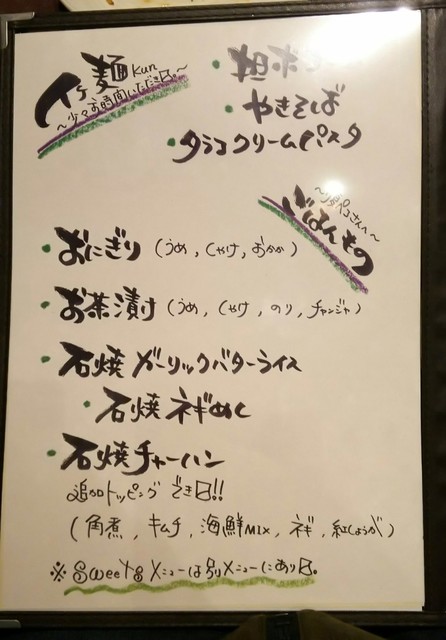 イケ麺 Kun
～少々お時間いただき〼。～
・担
・やきそば
・タラコクリームパスタ
ごはんもの
・おにぎり (うめ, しゃけ, おかか)
・お茶漬け (うめ, しゃけ, のり, チャンジャ)
・石焼ガーリックバターライス
・石焼ネギめし
・石焼チャーハン
追加トッピングでき〼!!
(角煮, キムチ, 海鮮MIX, ネギ, 紅しょうが)
※ Sweetsメニューは別メニューにあり〼。